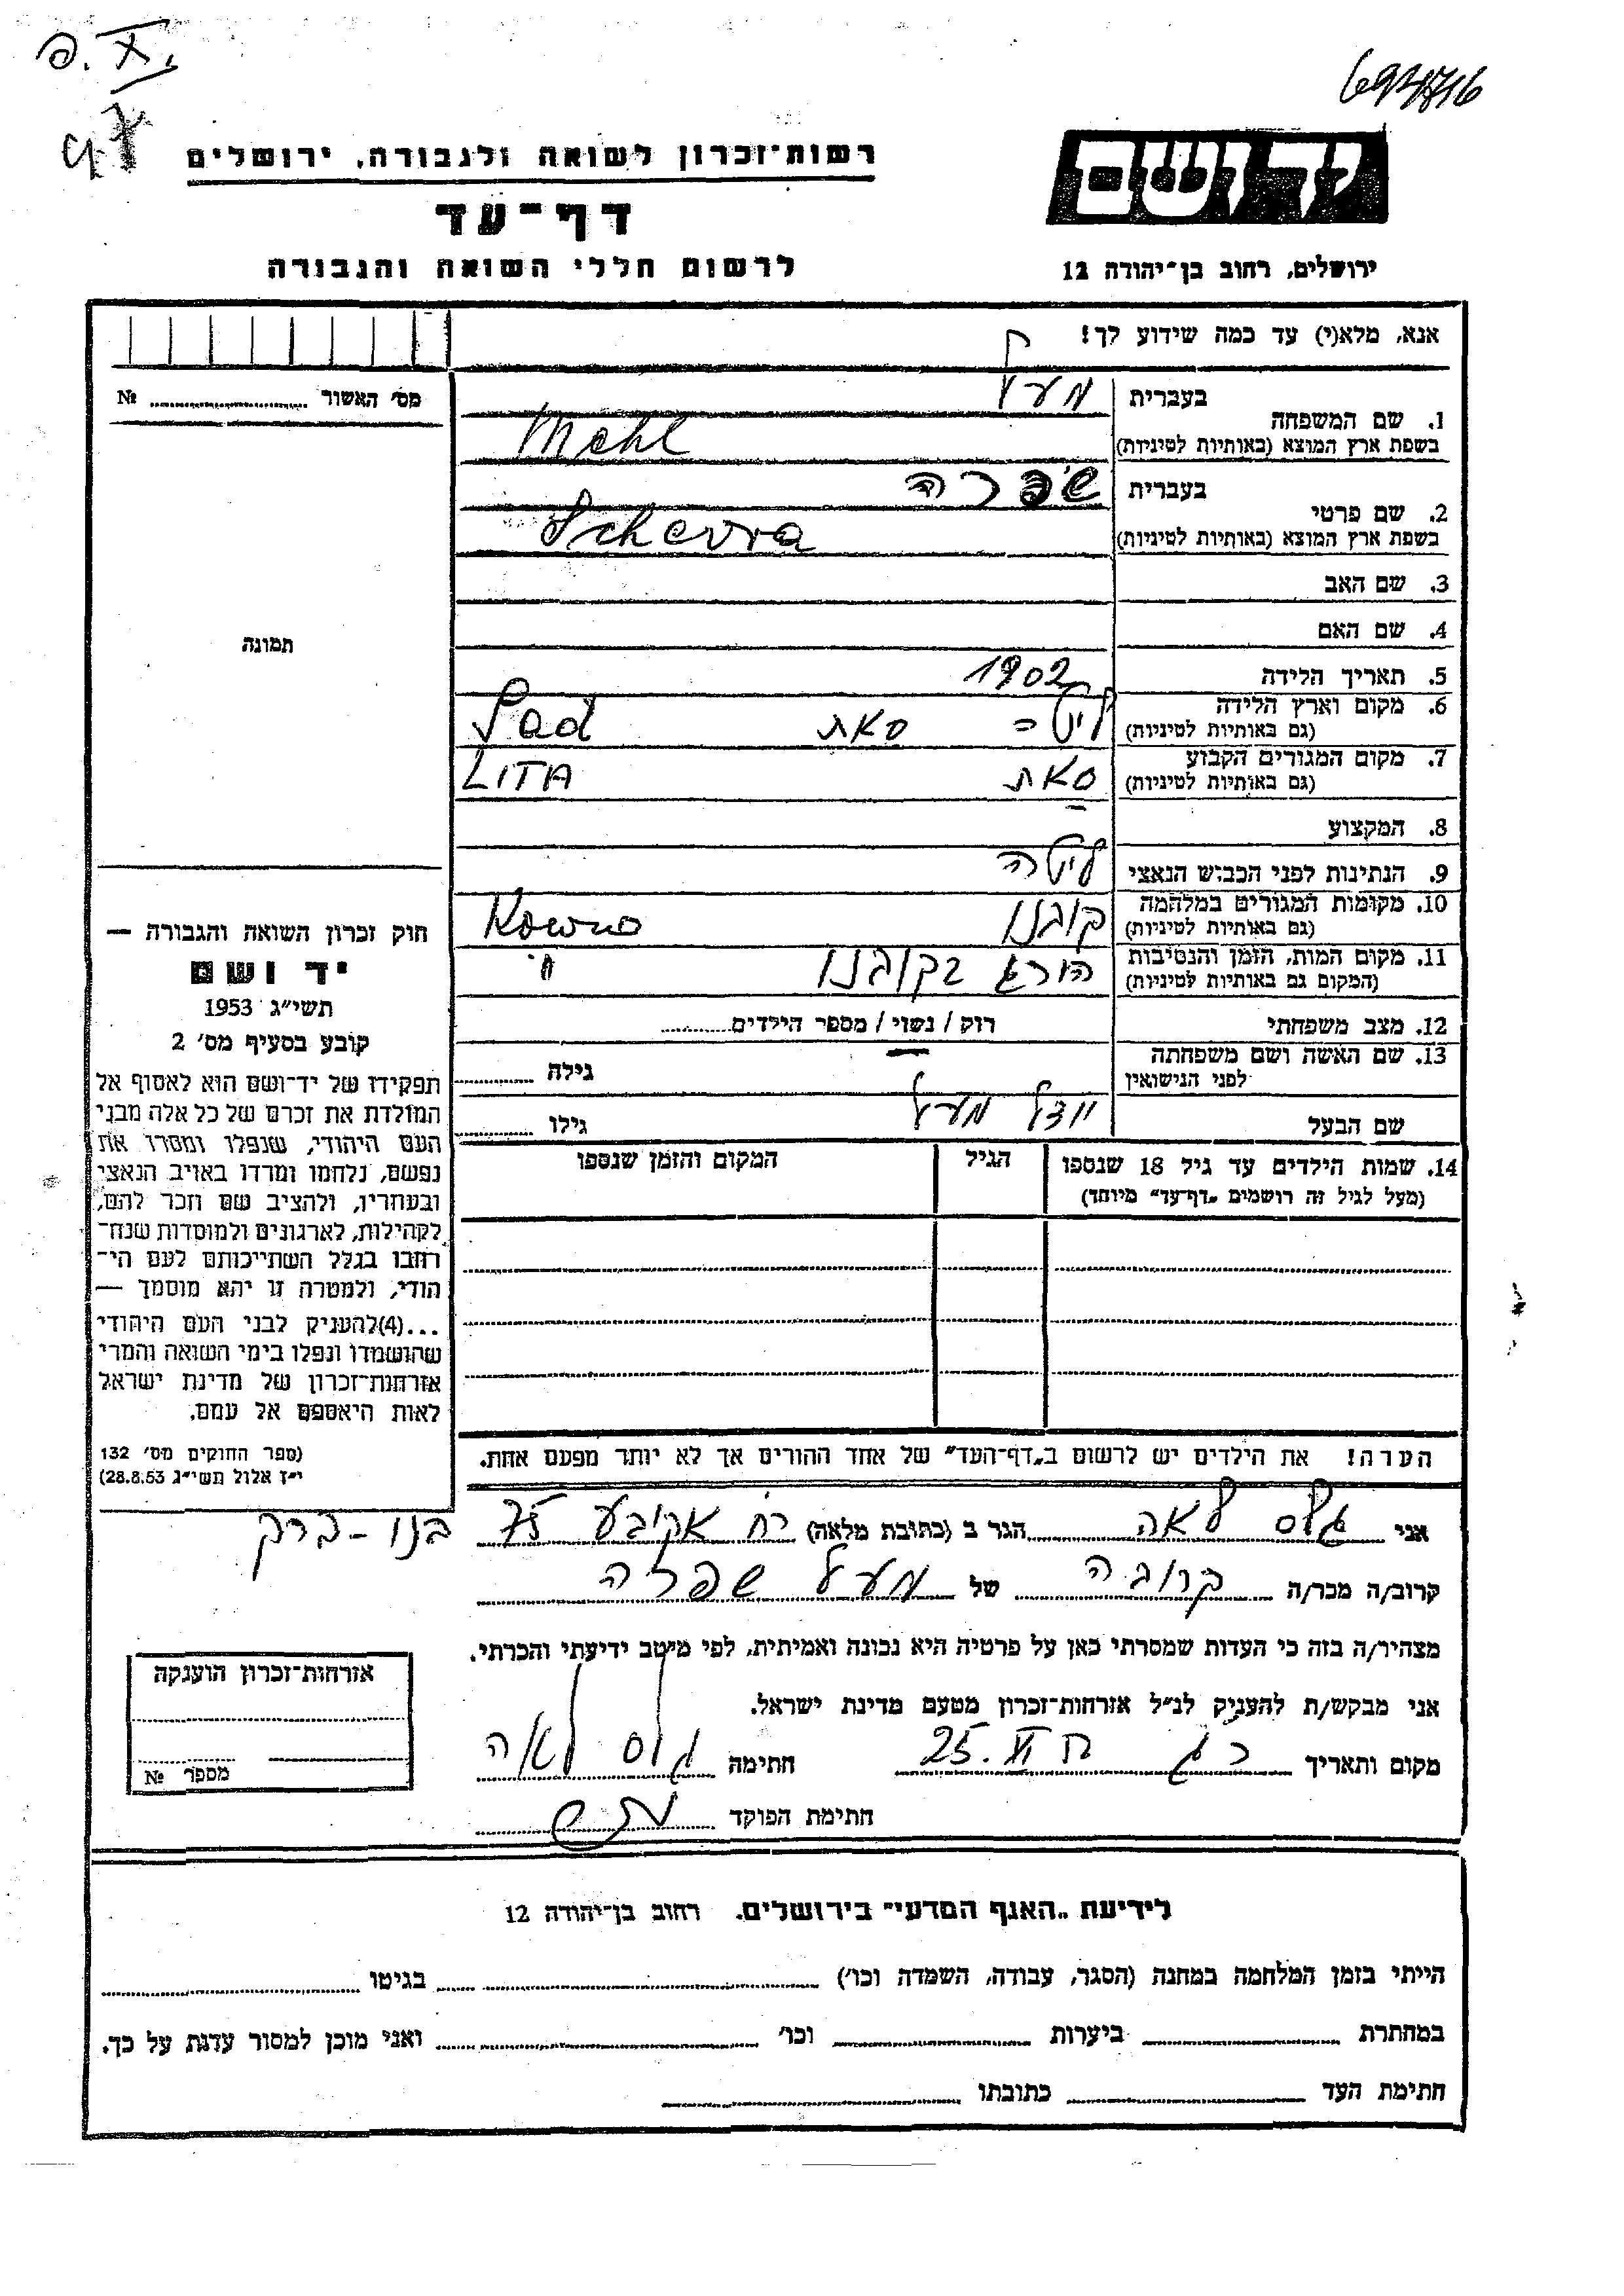 694716
רשות־זכרון לשואה ולגבורה, ירושלים
יד ושם
דף־עד
לרשום חללי השואה והגבורה
ירושלים, רחוב בן־יהודה 12
אנא, מלא(י) עד כמה שידוע לך!
מס׳ האשור № ........
בעברית מעל
1. שם המשפחה
בשפת ארץ המוצא (באותיות לטיניות) Mehl
בעברית שפרה
2. שם פרטי
בשפת ארץ המוצא (באותיות לטיניות)
3. שם האב
4. שם האם
תמונה
5. תאריך הלידה 1902
6. מקום וארץ הלידה ליטה סאת Sad
(גם באותיות לטיניות)
7. מקום המגורים הקבוע סאת LITA
(גם באותיות לטיניות)
8. המקצוע
9. הנתינות לפני הכבוש הנאצי ליטה
10. מקומות המגורים במלחמה קובנו Kowno
(גם באותיות לטיניות)
11. מקום המות, הזמן והנסיבות הורג בקובנו
(המקום גם באותיות לטיניות)
12. מצב משפחתי רוק / נשוי / מספר הילדים........
13. שם האשה ושם משפחתה גילה ........
לפני הנישואין
שם הבעל יודל מעל גילו ........
14. שמות הילדים עד גיל 18 שנספו הגיל המקום והזמן שנספו
(מעל לגיל זה רושמים „דף־עד״ מיוחד)
חוק זכרון השואה והגבורה —
יד ושם
תשי״ג 1953
קובע בסעיף מס׳ 2
תפקידו של יד־ושם הוא לאסוף אל
המולדת את זכרם של כל אלה מבני
העם היהודי, שנפלו ומסרו את
נפשם, נלחמו ומרדו באויב הנאצי
ובעוזריו, ולהציב שם וזכר להם,
לקהילות, לארגונים ולמוסדות שנח־
רחבו בגלל השתייכותם לעם הי־
הודי, ולמטרה זו יהא מוסמך —
...(4)להעניק לבני העם היהודי
שהושמדו ונפלו בימי השואה והמרי
אזרחות־זכרון של מדינת ישראל
לאות היאספם אל עמם.
(ספר החוקים מס׳ 132
י״ז אלול תשי״ג 28.8.53)
הערה! את הילדים יש לרשום ב„דף־העד״ של אחד ההורים אך לא יותר מפעם אחת.
אני גלס לאה הגר ב (כתובת מלאה) רח אקיבע 75 בנו-ברק
קרוב/ה מכר/ה קרובה של מעל שפרה
מצהיר/ה בזה כי העדות שמסרתי כאן על פרטיה היא נכונה ואמיתית, לפי מיטב ידיעתי והכרתי.
אני מבקש/ת להעניק לנ״ל אזרחות־זכרון מטעם מדינת ישראל.
מקום ותאריך 25. VI חתימה גלס לאה
חתימת הפוקד
אזרחות־זכרון הוענקה
מספר №
לידיעת „האגף המדעי״ בירושלים. רחוב בן־יהודה 12
הייתי בזמן המלחמה במחנה (הסגר, עבודה, השמדה וכו׳) ........ בגיטו ........
במחתרת ........ ביערות ........ וכו׳ ........ ואני מוכן למסור עדות על כך.
חתימת העד ........ כתובתו ........